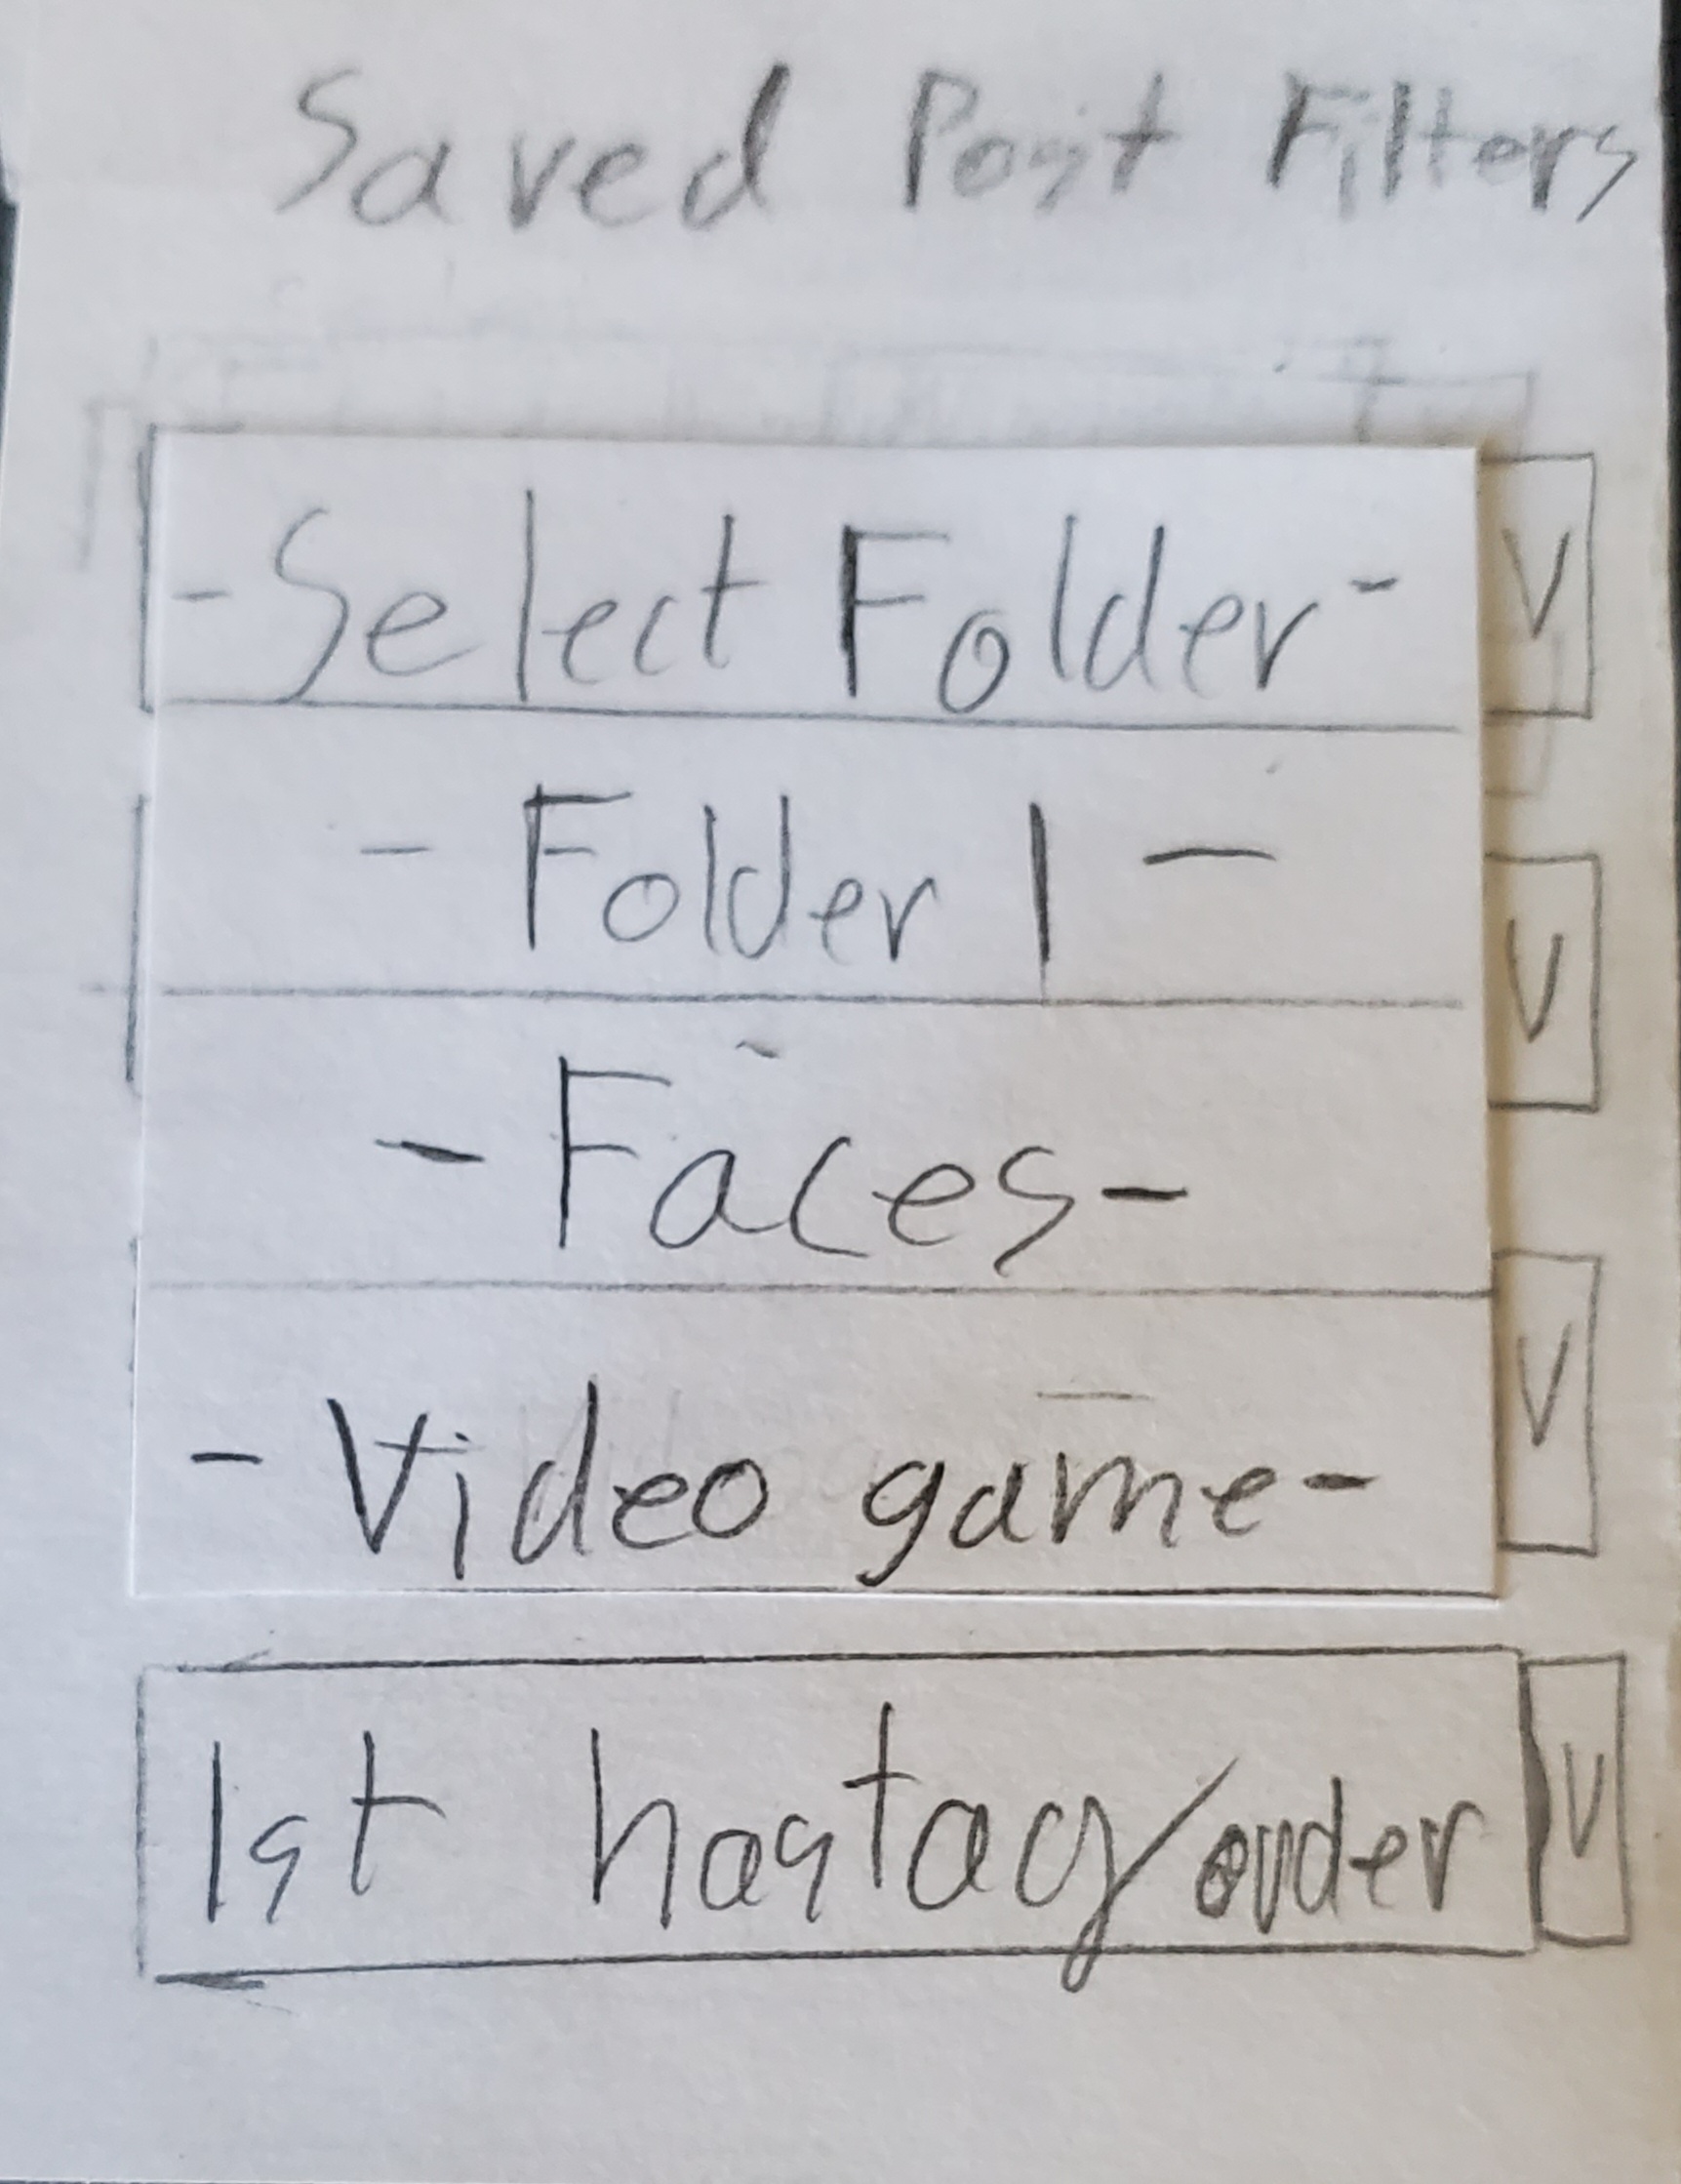 Saved Post Filters
-Select Folder-
V
- Folder 1 -
V
- Faces-
V
- Video game-
1st hastag/order
V